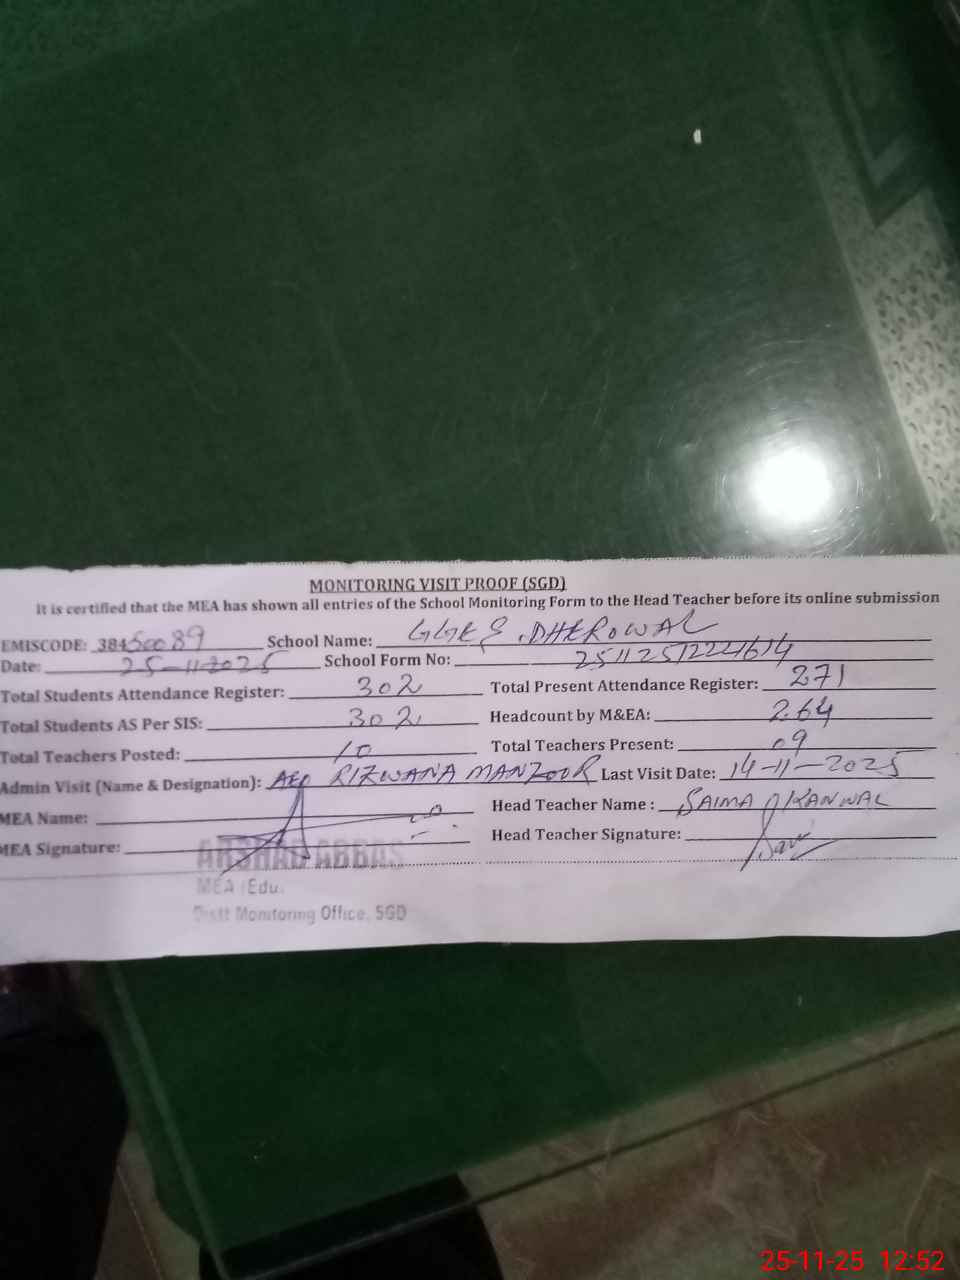 MONITORING VISIT PROOF (SGD)
It is certified that the MEA has shown all entries of the School Monitoring Form to the Head Teacher before its online submission
EMISCODE: 38450089 School Name: GGES, DHEROWAL
Date: 25-11-2025 School Form No:
Total Students Attendance Register: 302 Total Present Attendance Register: 271
Total Students AS Per SIS: 302 Headcount by M&EA: 264
Total Teachers Posted: 10 Total Teachers Present: 09
Admin Visit (Name & Designation): AEO RIZWANA MANZOOR Last Visit Date: 14-11-2025
MEA Name: Head Teacher Name : SAIMA KANWAL
MEA Signature: Head Teacher Signature:
ARSHAD ABBAS
MEA (Edu)
Distt Monitoring Office, SGD
25-11-25 12:52